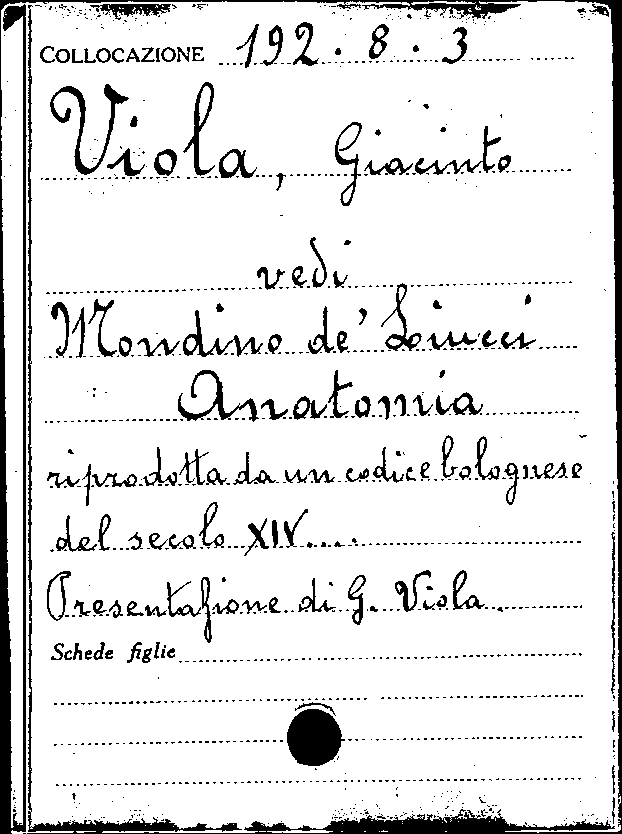 COLLOCAZIONE 192. 8. 3
Viola, Giacinto
vedi
Mondino de' Liucci
Anatomia
riprodotta da un codice bolognese
del secolo XIV....
Presentazione di G. Viola.
Schede figlie